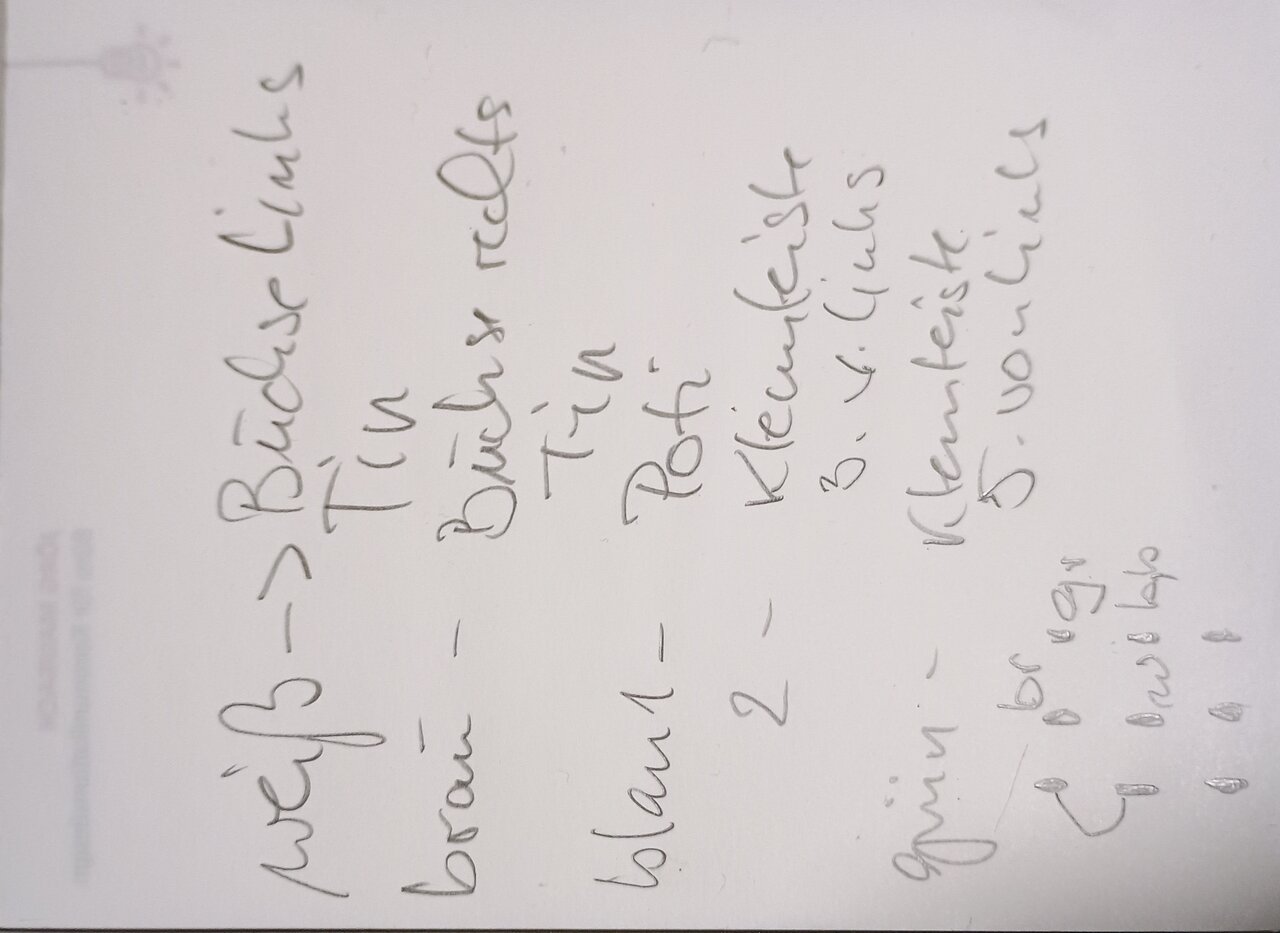 weiß -> Büchse Links
Tür
braū - Büchse rechts
Tür
blau 1 - Poti
2 - Klemmleiste
3. v. links
grün - Klemmleiste
5. von links
br gr
w bl